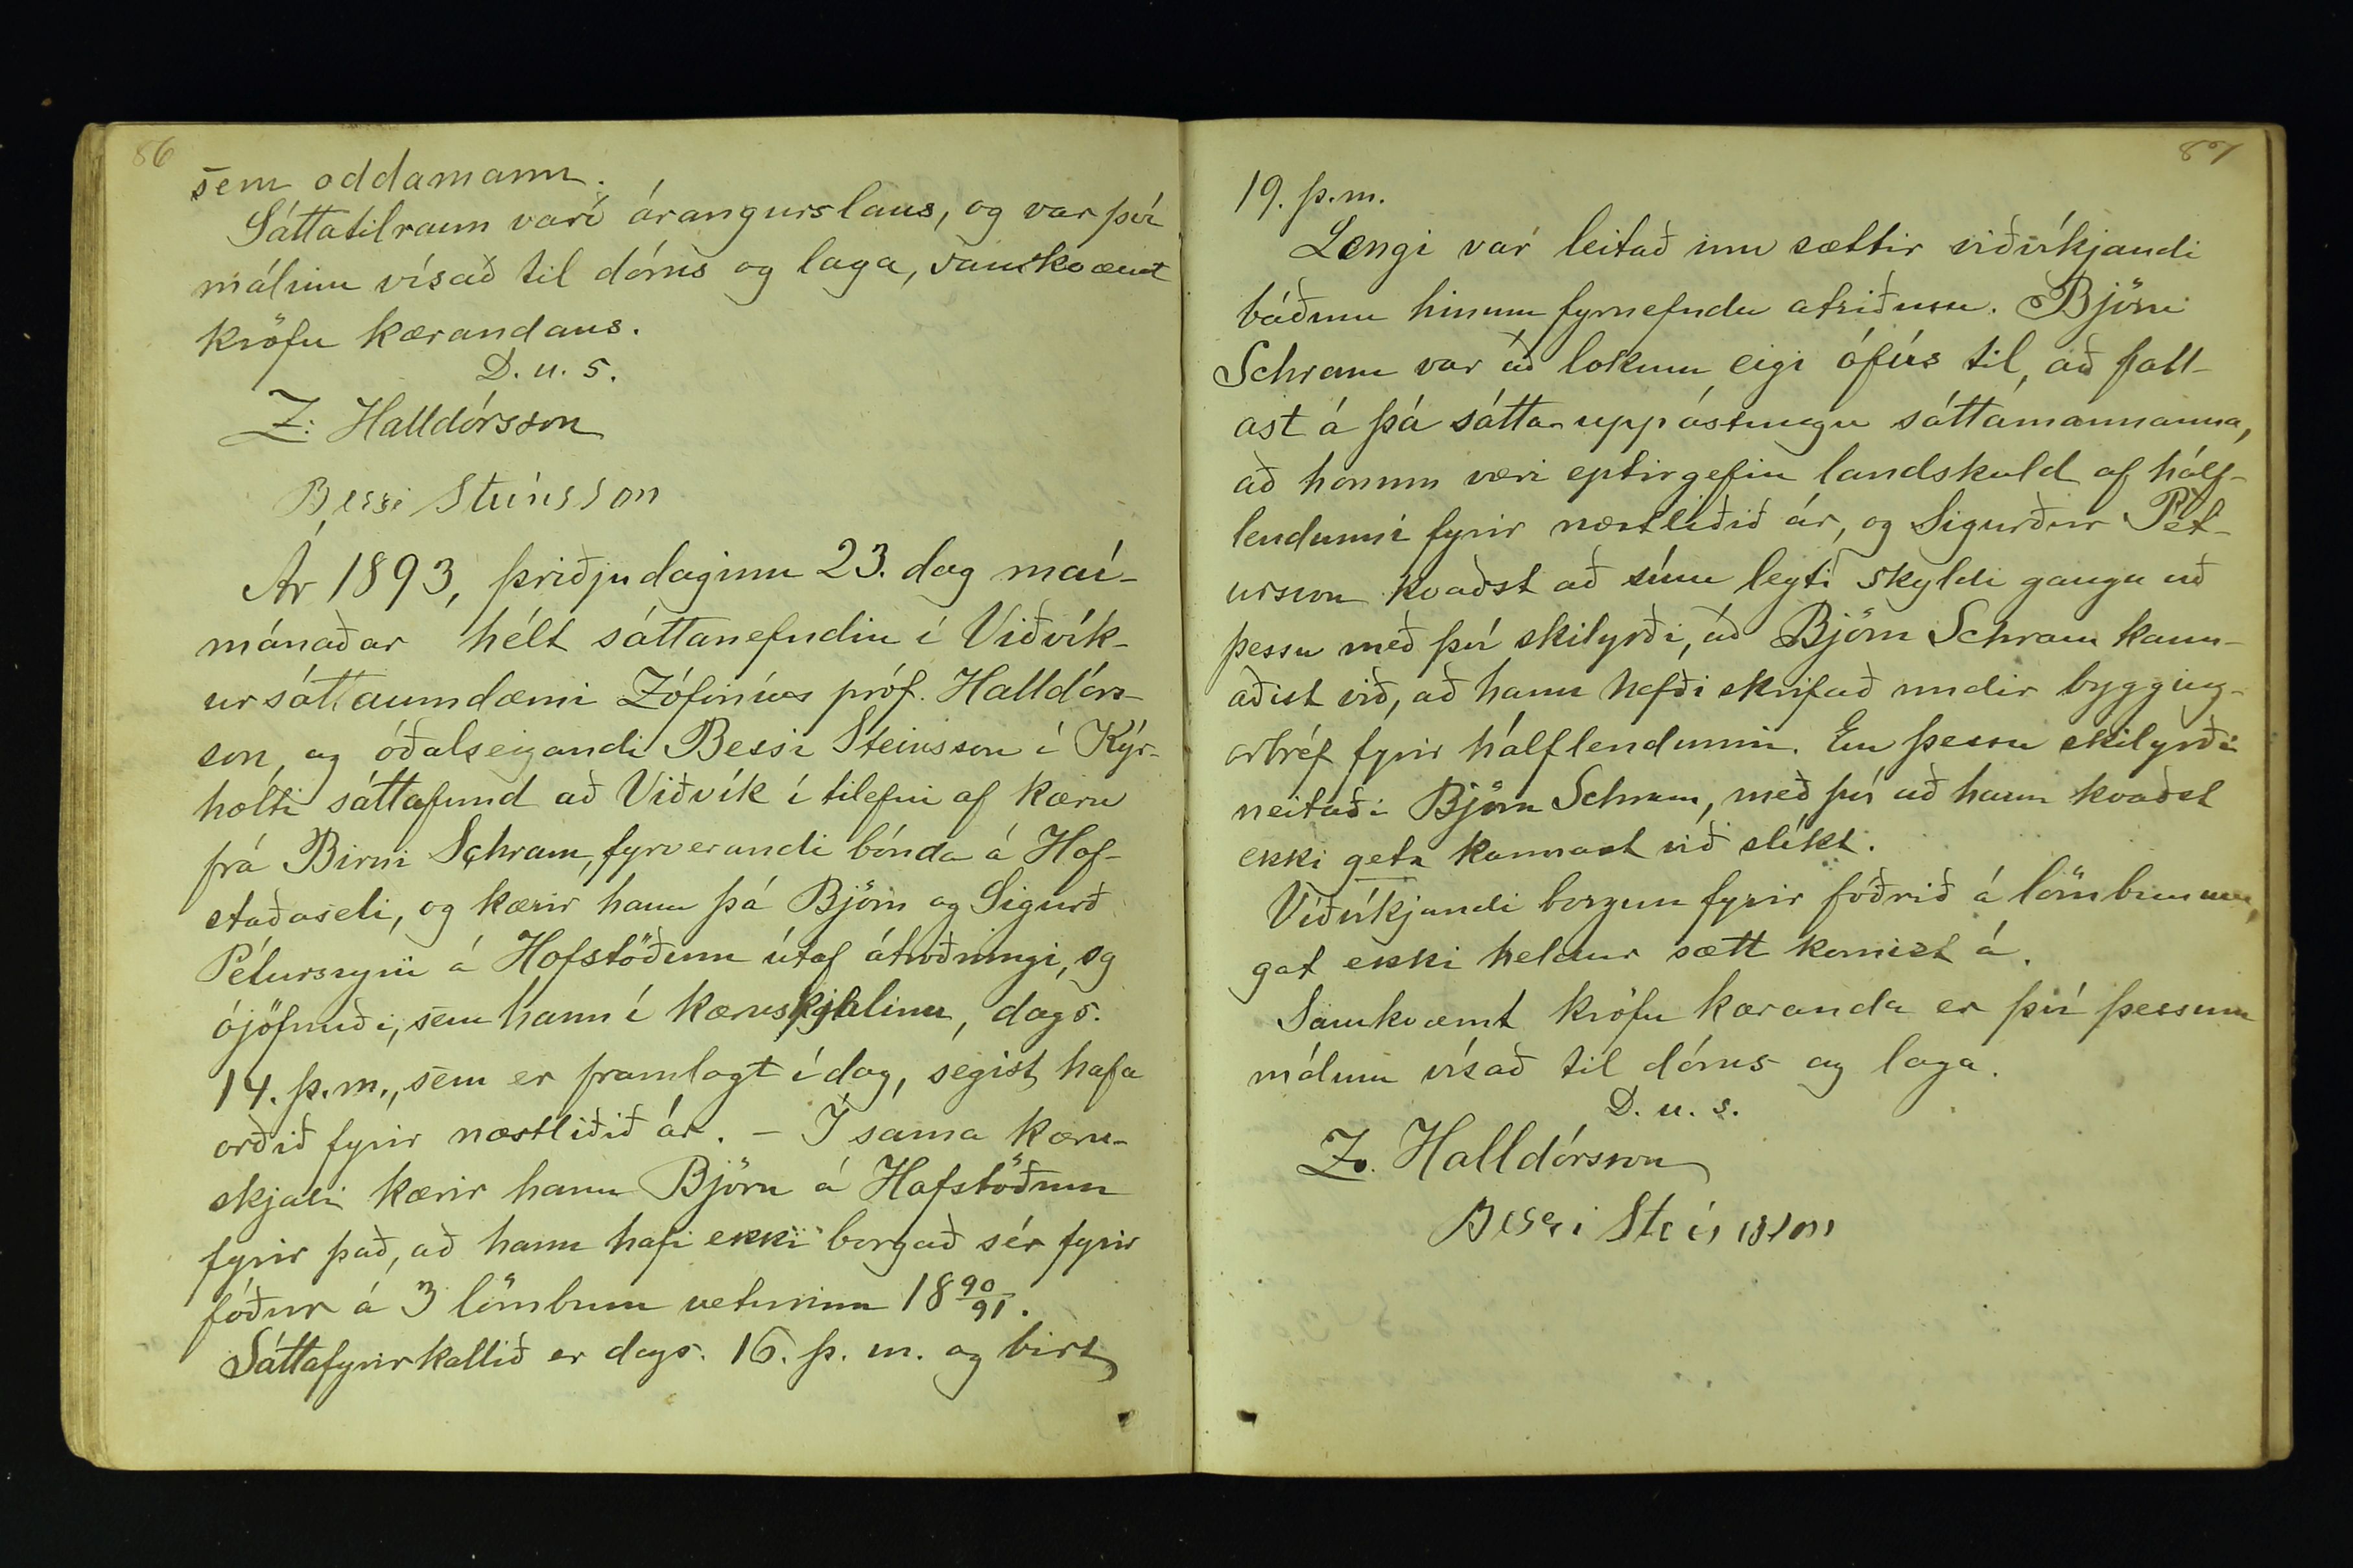 86
sem oddamann.
Sáttatilraun varð árangurslaus, og var því
málinu vísað til dóms og laga, samkvæmt
kröfu kærandans.
D. u. s.
Z. Halldórsson
Bessi Steinsson
Ár 1893, þriðjudaginn 23. dag maí-
mánaðar hélt sáttanefndin í Viðvík-
ursáttaumdæmi Zófónías próf. Halldórs-
son, og óðalseigandi Bessi Steinsson í Kýr-
holti sáttafund að Viðvík í tilefni af kæru
frá Birni Schram, fyrverandi bónda á Hof-
staðaseli, og kærir hann þá Björn og Sigurð
Péturssyni á Hofstöðum útaf átroðningi, og
ójöfnuði, sem hann í kæruskjalinu, dags.
14. þ.m., sem er framlagt í dag, segist hafa
orðið fyrir næstliðið ár. – Í sama kæru-
skjali kærir hann Björn á Hofstöðum
fyrir það, að hann hafi ekki borgað sér fyrir
fóður á 3 lömbum veturinn 18 90/91.
Sáttafyrirkallið er dags. 16. þ. m. og birt
87
19. þ.m.
Lengi var leitað um sættir viðvíkjandi
báðum hinum fyrnefndu atriðum. Björn
Schram var að lokum eigi ófús til, að fall-
ast á þá sáttauppástungu sáttamannanna,
að honum væri eptirgefin landskuld af hálf-
lendunni fyrir næstliðið ár, og Sigurður Pét-
ursson kvaðst að sínu leyti skyldi ganga að
þessu með því skilyrði, að Björn Schram kann-
aðist við, að hann hefði skrifað undir bygging-
arbréf fyrir hálflendunni. En þessu skilyrði
neitaði Björn Schram, með því að hann kvaðst
ekki geta kannast við slíkt.
Viðvíkjandi borgun fyrir fóðrið á lömbunum,
gat ekki heldur sætt komist á.
Samkvæmt kröfu kæranda er því þessum
málum vísað til dóms og laga.
D. u. s.
Z. Halldórsson
Bessi Steinsson